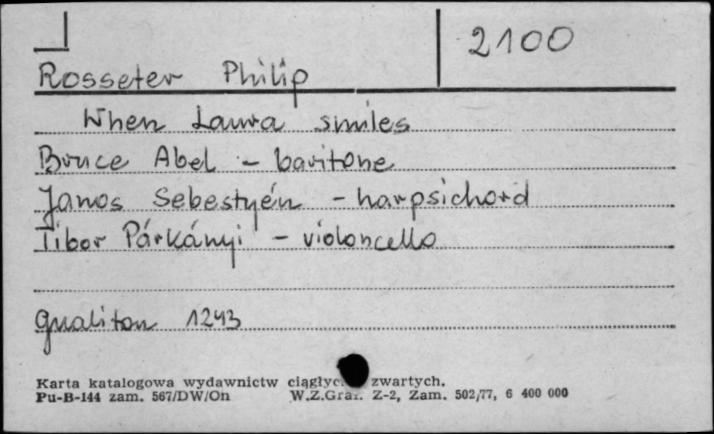 2100
Rosseter Philip
When Laura smiles
Bruce Abel - baritone
Janos Sebestyén - harpsichord
Tibor Párkányi - violoncello
Qualiton 1243
Karta katalogowa wydawnictw zwartych.
Pu-B-144 zam. 567/DW/On W.Z.Graf. Z-2, Zam. 502/77, 6 400 000